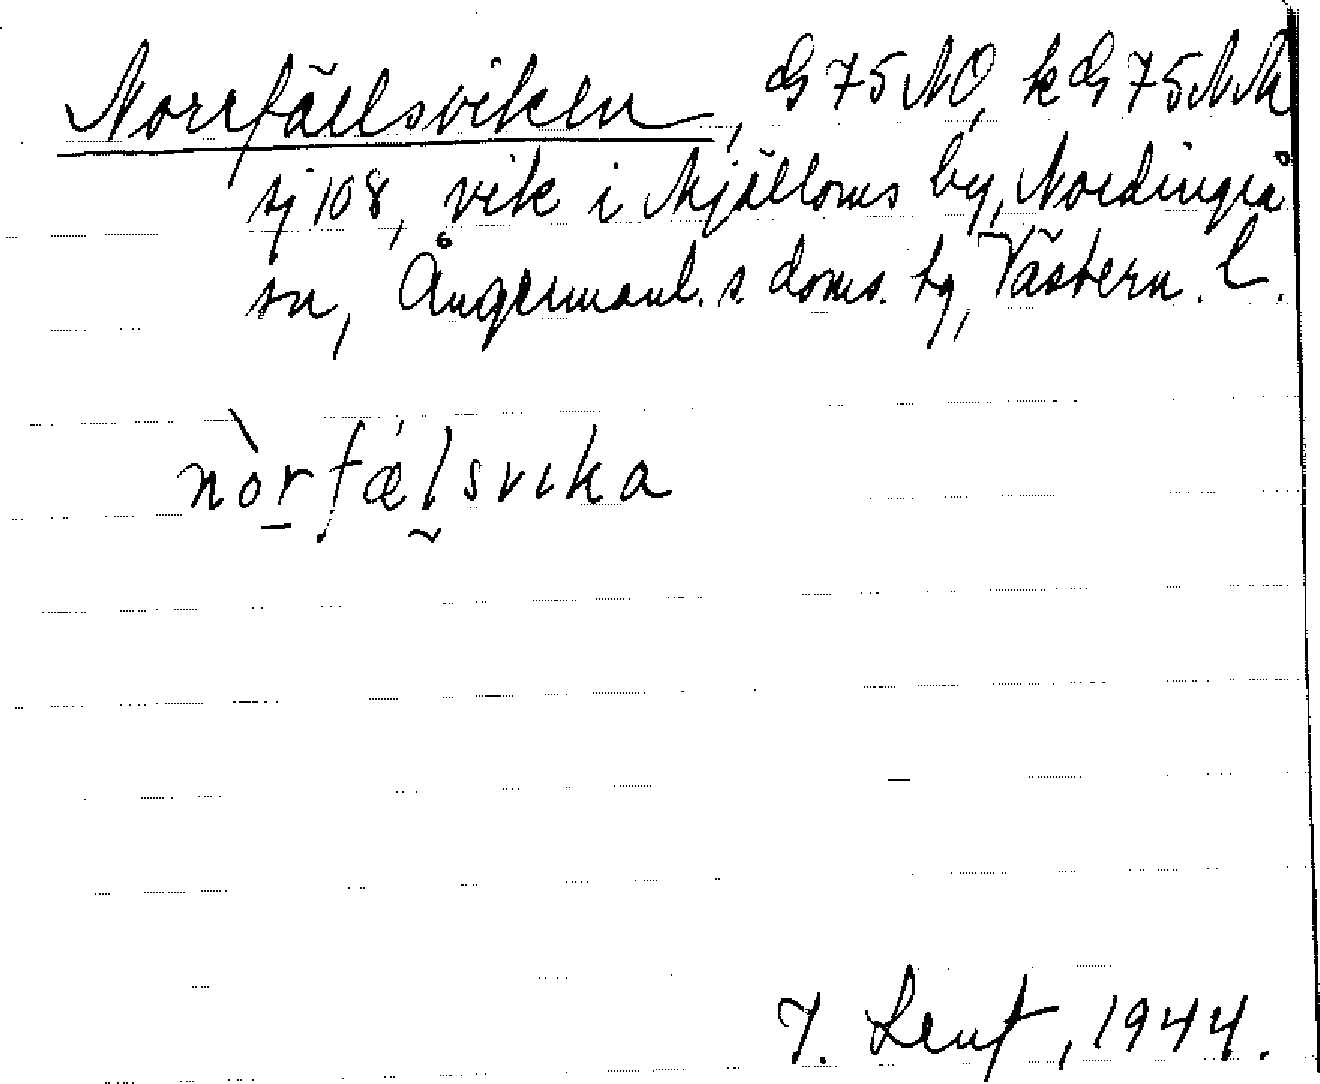 Norrfällsviken, G 75 NO, kG 75 NM
sj 108, vik i Mjälloms by, Nordingrå
sn, Ångermanl. s doms. tg, Västern. l.
nòrfælsvika
J. Lenf, 1944.